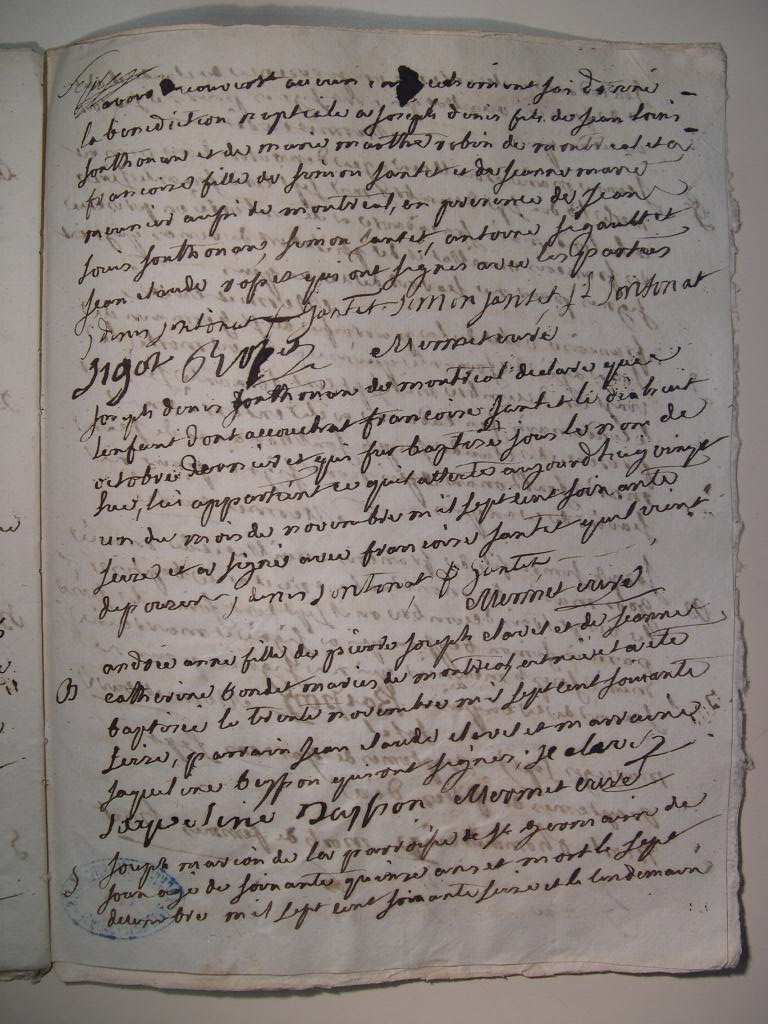 avons decouvert aucun empechement jai donné
la benediction nuptiale a joseph denis fils de jean louis
jonthonan et de marie marthe robin de montreal et a
francoise fille de simon jantet et de jeanne marie
meunier aussi de montreal, en presence de jean
louis jonthonan, simon jantet, antoine jigault et
jean claude rosset qui ont signés avec les parties
j denis jontonat f jantet simon jantet j l jontonat
jigot Mermet curé
joseph denis jonthonan de montreal declare que
lenfant dont accouchat francoise jantet le dixhuit
octobre dernier et qui fut baptisé sous le nom de
luc, lui appartient ce quil atteste aujourdhuy vingt
un du mois de novembre mil sept cent soixante
seize et a signé avec francoise jantet quil vient
depouser j denis jontonat f jantet
Mermet curé
andrée anne fille de pierre joseph clavel et de jeanne
B catherine bondet mariés de montreal, est née et a eté
baptisée le trente novembre mil sept cent soixante
seize, parrain jean claude clavel et marraine
jaqueline buffon qui ont signés, je clavel
jaqueline Mermet curé
S joseph marion de la parroisse de st germain de
joux agé de soixante quinze ans est mort le sept
decembre mil sept cent soixante seize et le lendemain